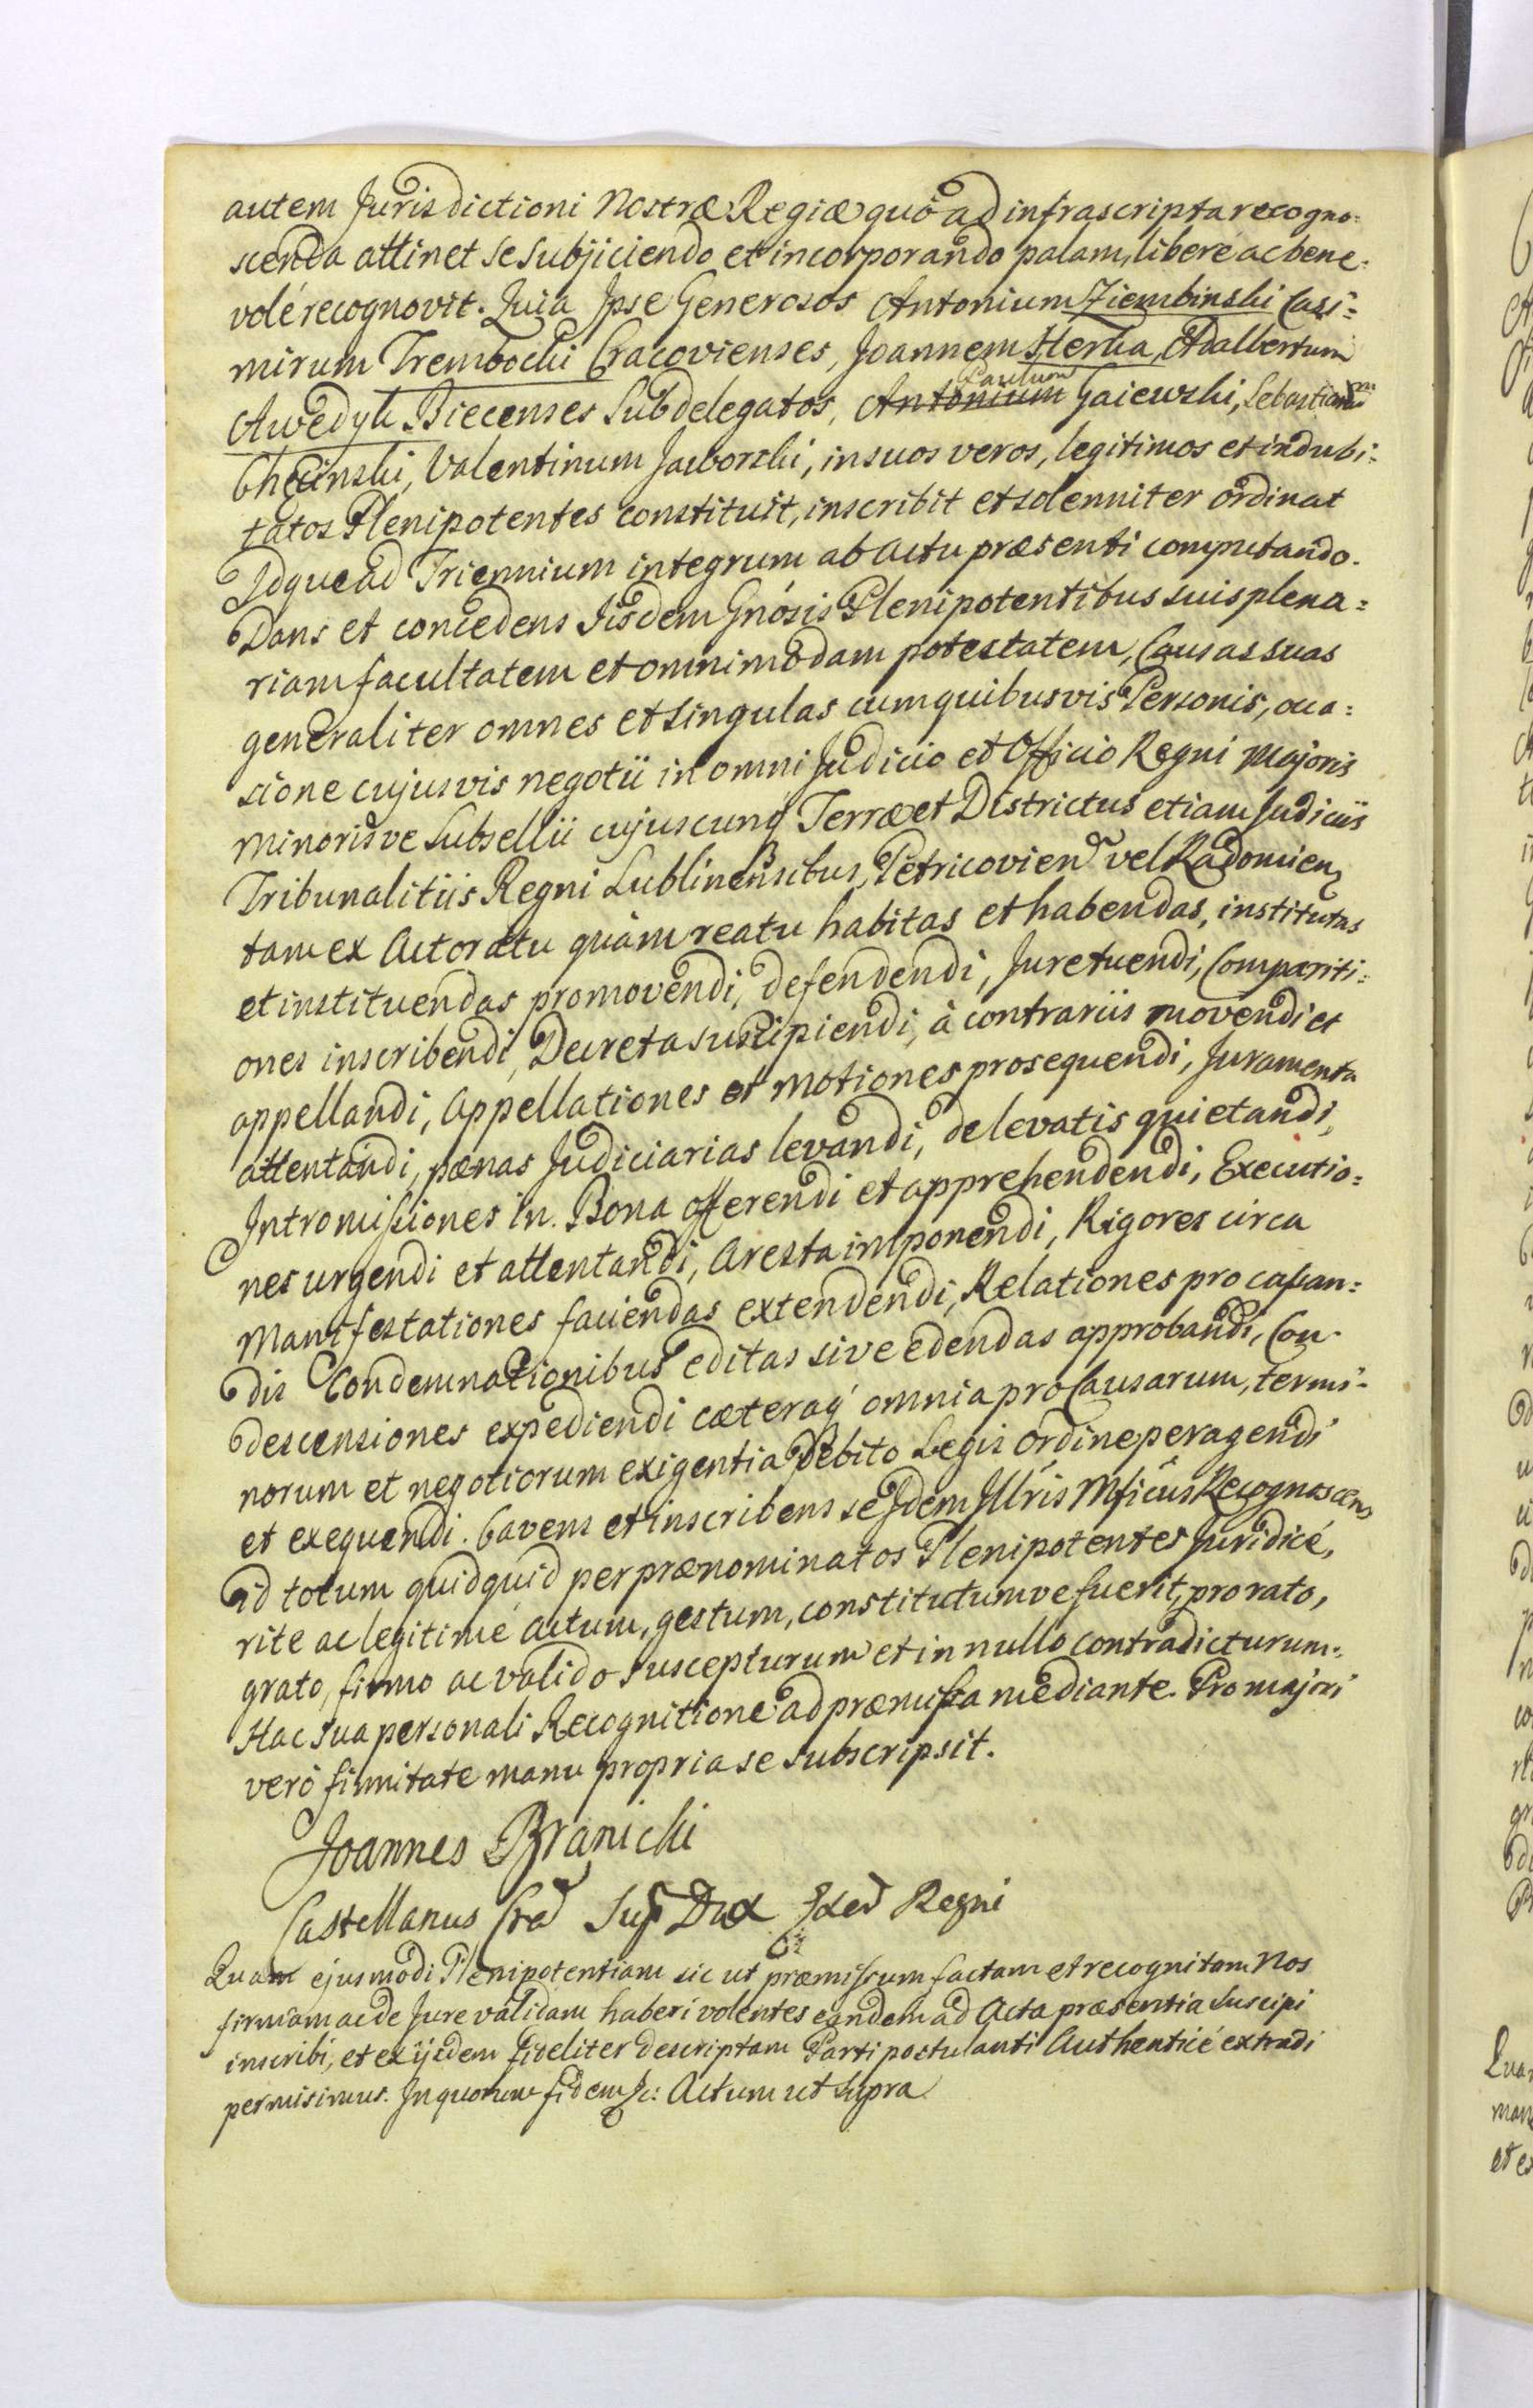 autem Jurisdictioni Nostræ Regiæ quò ad infrascripta recogno=
scenda attinet se subjiciendo et incorporando palam, liberè ac bene=
volè recognovit. Quia Ipse Generosos Antonium Ziembinski Casi=
mirum Trembocki Cracovienses, Joannem Herka, Adalbertum
Awedyk Biecenses Subdelegatos, Antonium Paulum Gaiewski, Sebastianum
Chęcinski, Valentinum Jaworski, in suos veros, legitimos et indubi=
tatos Plenipotentes constituit, inscribit et solenniter ordinat
Idque ad Triennium integrum ab Actu præsenti computando.
Dans et concedens Iisdem Gnosis Plenipotentibus suis plena=
riam facultatem et omnimodam potestatem, Causas suas
generaliter omnes et singulas cum quibusvis Personis, occa=
sione cujusvis negotii in omni Judicio et Officio Regni Majoris
Minorisve Subsellii cujuscunq Terræ et Districtus etiam Judiciis
Tribunalitiis Regni Lublinensibus, Petricovien vel Radomien
tam ex Actoratu quàm reatu habitas et habendas, institutas
et instituendas promovendi, defendendi, Jure tuendi, Compariti=
ones inscribendi, Decreta suscipiendi, à contrariis movendi et
appellandi, Appellationes et motiones prosequendi, Juramenta
attentandi, pœnas Judiciarias levandi, de levatis quietandi,
Intromissiones in Bona offerendi et apprehendendi, Executio=
nes urgendi et attentandi, Aresta imponendi, Rigores circa
Manifestationes faciendas extendendi, Relationes pro cassan=
dis Condemnationibus editas sive edendas approbandi, Con=
descensiones expediendi cæteraq omnia pro Causarum, termi=
norum et negotiorum exigentia debito Legis ordine peragendi
et exequendi. Cavens et inscribens se Idem Illris Mficus Recognoscens
id totum quidquid per prænominatos Plenipotentes Juridicè,
rite ac legitimè actum, gestum, constitutumve fuerit, pro rato,
grato, firmo ac valido suscepturum et in nullo contradicturum.
Hac sua personali Recognitione ad præmissa mediante. Pro majori
verò firmitate manu propria se subscripsit.
Joannes Branicki
Castellanus Cra Sup Dux Exer Regni
Quam ejusmodi Plenipotentiam sic ut præmissum factam et recognitam Nos
firmam ac de Jure validam haberi volentes eandem ad Acta præsentia suscipi
inscribi, et ex ijsdem fideliter descriptam Parti postulanti Authenticè extradi
permisimus. In quorum fidem &c: Actum ut supra